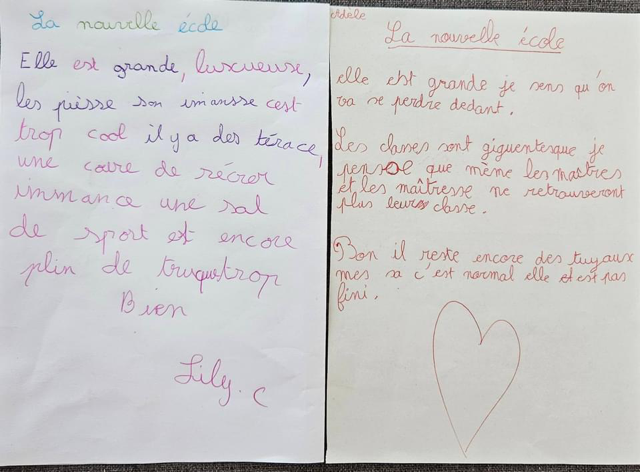 La nouvelle école
Elle est grande, luxcueuse,
les pièsse son imansse c'est
trop cool il y a des térace,
une coure de récrer
immance une sal
de sport est encore
plin de truquetrop
Bien
Lily. C
Adèle
La nouvelle école
elle est grande je sens qu'on
va se perdre dedant.
Les classes sont giguentesque je
pense que même les maîtres
et les maîtresse ne retrouveront
plus leurs classe.
Bon il reste encore des tuyaux
mes sa c'est normal elle et est pas
fini.